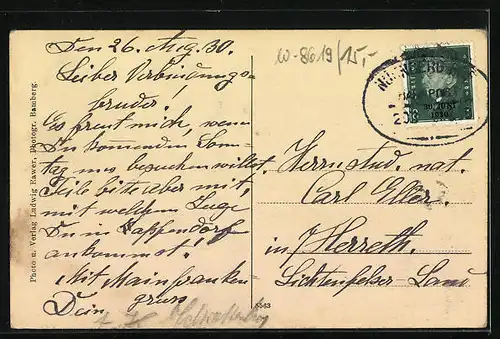 Den 26. Aug. 30.
Lieber Verbindungs-
bruder!
Es freut mich, wenn
Du kommenden Sonn-
tag uns besuchen willst.
Teile bitte aber mit,
mit welchem Zuge
Du in Rappendorf
ankommst!
Mit Mainfranken-
gruss
Dein
W-8619/15,-
30. JUNI
1930
208
Herrn stud. nat.
Carl Eller.
in Herreth.
Lichtenfelser-Land
Photo u. Verlag Ludwig Rawer, Photogr. Bamberg.